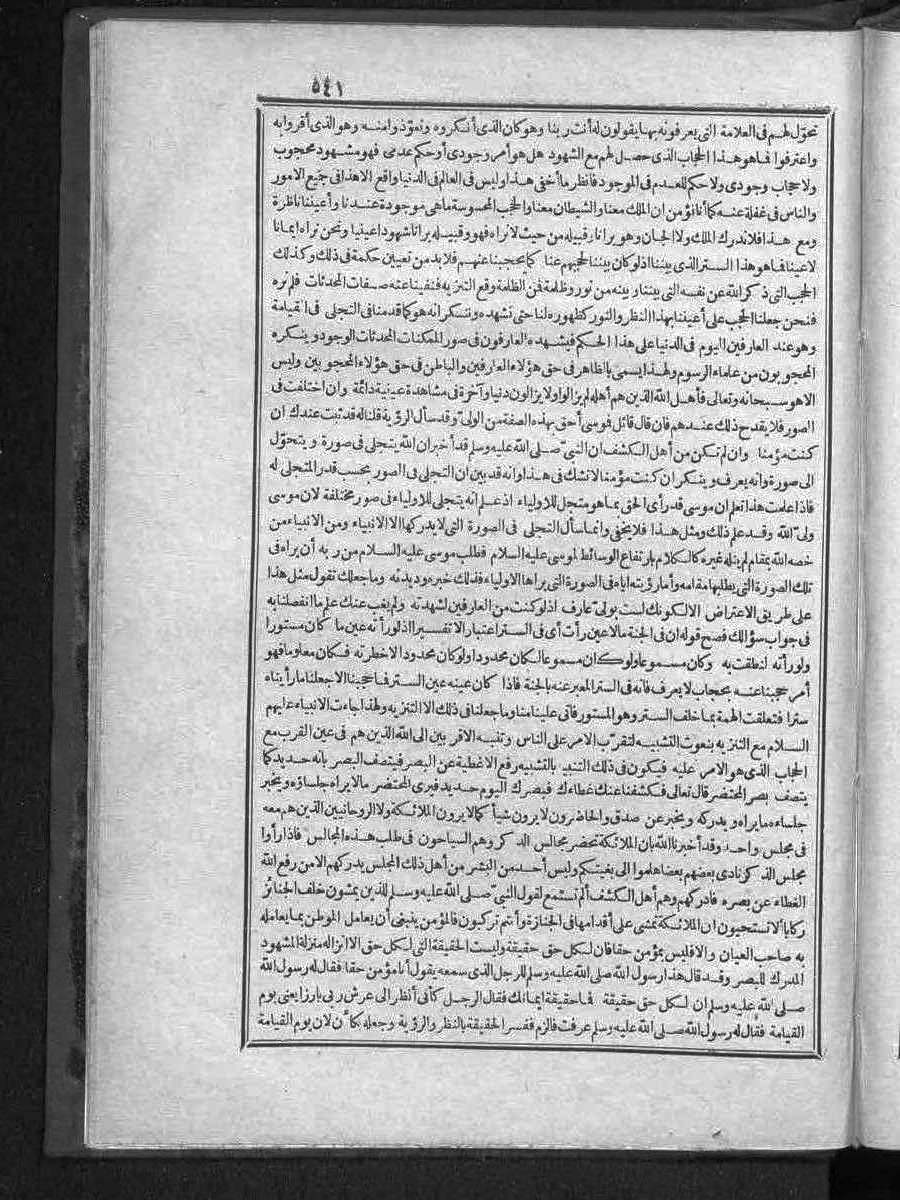 ٥٤١
تحوّل لهم فى العلامة التى يعرفونه بها يقولون له أنت ربنا وهو كان الذى أنكروه وتعوّذوا منه وهو الذى أقروا به
واعترفوا فما هو هذا الحجاب الذى حصل لهم مع الشهود هل هو أمر وجودى أو حكم عدمى فهو مشهود محجوب
ولا حجاب وجودى ولا حكم للعدم فى الموجود فانظر ما أخفى هذا وليس فى العالم فى الدنيا واقع الا هذا فى جميع الامور
والناس فى غفلة عنه كما أنا نؤمن ان الملك معنا والشيطان معنا والحجب المحسوسة ما هى موجودة عندنا وأعيننا ناظرة
ومع هذا فلا ندرك الملك ولا الجان وهو يرانا وقبيله من حيث لا نراه فهو وقبيله يرانا شهودا عينيا ونحن نراه ايمانا
لا عينا فما هو هذا الستر الذى بيننا اذ لو كان بيننا لحجبهم عنا كما يحجبنا عنهم فلا بد من تعيين حكمة فى ذلك وكذلك
الحجب التى ذكر الله عن نفسه التى بيننا وبينه من نور وظلمة فمن الظلمة وقع التنزيه فنفينا عنه صفات المحدثات فلم نره
فنحن جعلنا الحجب على أعيننا بهذا النظر والنور كظهوره لنا حتى نشهده وننكر انه هو كما قدمنا فى التجلى فى القيامة
وهو عند العارفين اليوم فى الدنيا على هذا الحكم فيشهده العارفون فى صور الممكنات المحدثات الوجود وينكره
المحجوبون من علماء الرسوم ولهذا يسمى بالظاهر فى حق هؤلاء العارفين والباطن فى حق هؤلاء المحجوبين وليس
الا هو سبحانه وتعالى فأهل الله الذين هم أهله لم يزالوا ولا يزالون دنيا وآخرة فى مشاهدة عينية دائمة وان اختلفت فى
الصور فلا يقدح ذلك عندهم فان قال قائل فموسى أحق بهذه الصفة من الولىّ وقد سأل الرؤية قلنا له قد ثبت عندك ان
كنت مؤمنا وان لم تكن من أهل الكشف ان النبىّ صلى الله عليه وسلم قد أخبر ان الله يتجلى فى صورة ويتحوّل
الى صورة وانه يعرف وينكر ان كنت مؤمنا لا تشك فى هذا وانه قد بين ان التجلى فى الصور بحسب قدر المتجلى له
فاذا علمت هذا تعلم ان موسى قد رأى الحق بما هو متجل للاولياء اذ علم انه يتجلى للاولياء فى صور مختلفة لان موسى
ولىّ الله وقد علم ذلك ومثل هذا فلا يخفى وانما سأل التجلى فى الصورة التى لا يدركها الا الانبياء ومن الانبياء من
خصه الله بمقام لم ينله غيره كالكلام بارتفاع الوسائط لموسى عليه السلام فطلب موسى عليه السلام من ربه أن يراه فى
تلك الصورة التى يطلبها مقامه وأما رؤيته اياه فى الصورة التى يراها الاولياء فذلك خبره وديدنه وما جعلك تقول مثل هذا
على طريق الاعتراض الا لكونك لست بولىّ عارف اذ لو كنت من العارفين لشهدته ولم يغب عنك علم ما انفصلنا به
فى جواب سؤالك فصح قوله ان فى الجنة ما لا عين رأت أى فى الستر اعتبارا لا تفسيرا اذ لو رأته عين ما كان مستورا
ولو رأته لنطقت به وكان مسموعا ولو كان مسموعا لكان محدودا ولو كان محدودا لاخطرته فكان معلوما فهو
أمر حجبنا عنه بحجاب لا يعرف فانه فى الستر المعبر عنه بالجنة فاذا كان عينه عين الستر فما حجبنا الا جعلنا ما رأيناه
سترا فتعلقت الهمة بما خلف الستر وهو المستور فاتى علينا منا وما جعلنا فى ذلك الا التنزيه ولهذا جاءت الانبياء عليهم
السلام مع التنزيه بنعوت التشبيه لتقرّب الامر على الناس وتنبه الاقربين الى الله الذين هم فى عين القرب مع
الحجاب الذى هو الامر عليه فيكون فى ذلك التنبيه بالتشبيه رفع الاغطية عن البصر فيتصف البصر بانه حديد كما
يتصف بصر المحتضر قال تعالى فكشفنا عنك غطاءك فبصرك اليوم حديد فيرى المحتضر ما لا يراه جلساؤه ويخبر
جلساءه ما يراه ويدركه ويخبر عن صدق والحاضرون لا يرون شيأ كما لا يرون الملائكة ولا الروحانيين الذين هم معه
فى مجلس واحد وقد أخبرنا الله بان الملائكة تحضر مجالس الذكر وهم السياحون فى طلب هذه المجالس فاذا رأوا
مجلس الذكر نادى بعضهم بعضا هلموا الى بغيتكم وليس أحد من البشر من أهل ذلك المجلس يدركهم الا من رفع الله
الغطاء عن بصره فادركهم وهم أهل الكشف ألم تستمع لقول النبىّ صلى الله عليه وسلم للذين يمشون خلف الجنائز
ركابا ألا تستحيون ان الملائكة تمشى على أقدامها فى الجنازة وأنتم تركبون فالمؤمن ينبغى أن يعامل الموطن بما يعامله
به صاحب العيان والا فليس بمؤمن حقا فان لكل حق حقيقة وليست الحقيقة التى لكل حق الا انزاله منزلة المشهود
المدرك للبصر وقد قال هذا رسول الله صلى الله عليه وسلم للرجل الذى سمعه يقول أنا مؤمن حقا فقال له رسول الله
صلى الله عليه وسلم ان لكل حق حقيقة فما حقيقة ايمانك فقال الرجل كأنى أنظر الى عرش ربى بارزا يعنى يوم
القيامة فقال له رسول الله صلى الله عليه وسلم عرفت فالزم ففسر الحقيقة بالنظر والرؤية وجعله بكأن لان يوم القيامة